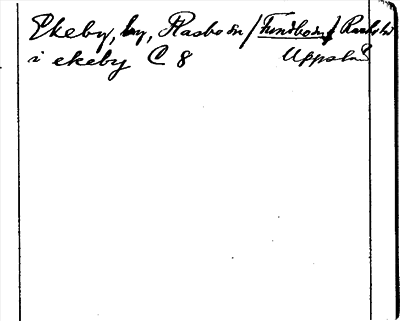 Ekeby, by, Rasbo sn / Funbo sn / Rasbo hd
i ekeby C 8 Uppsala